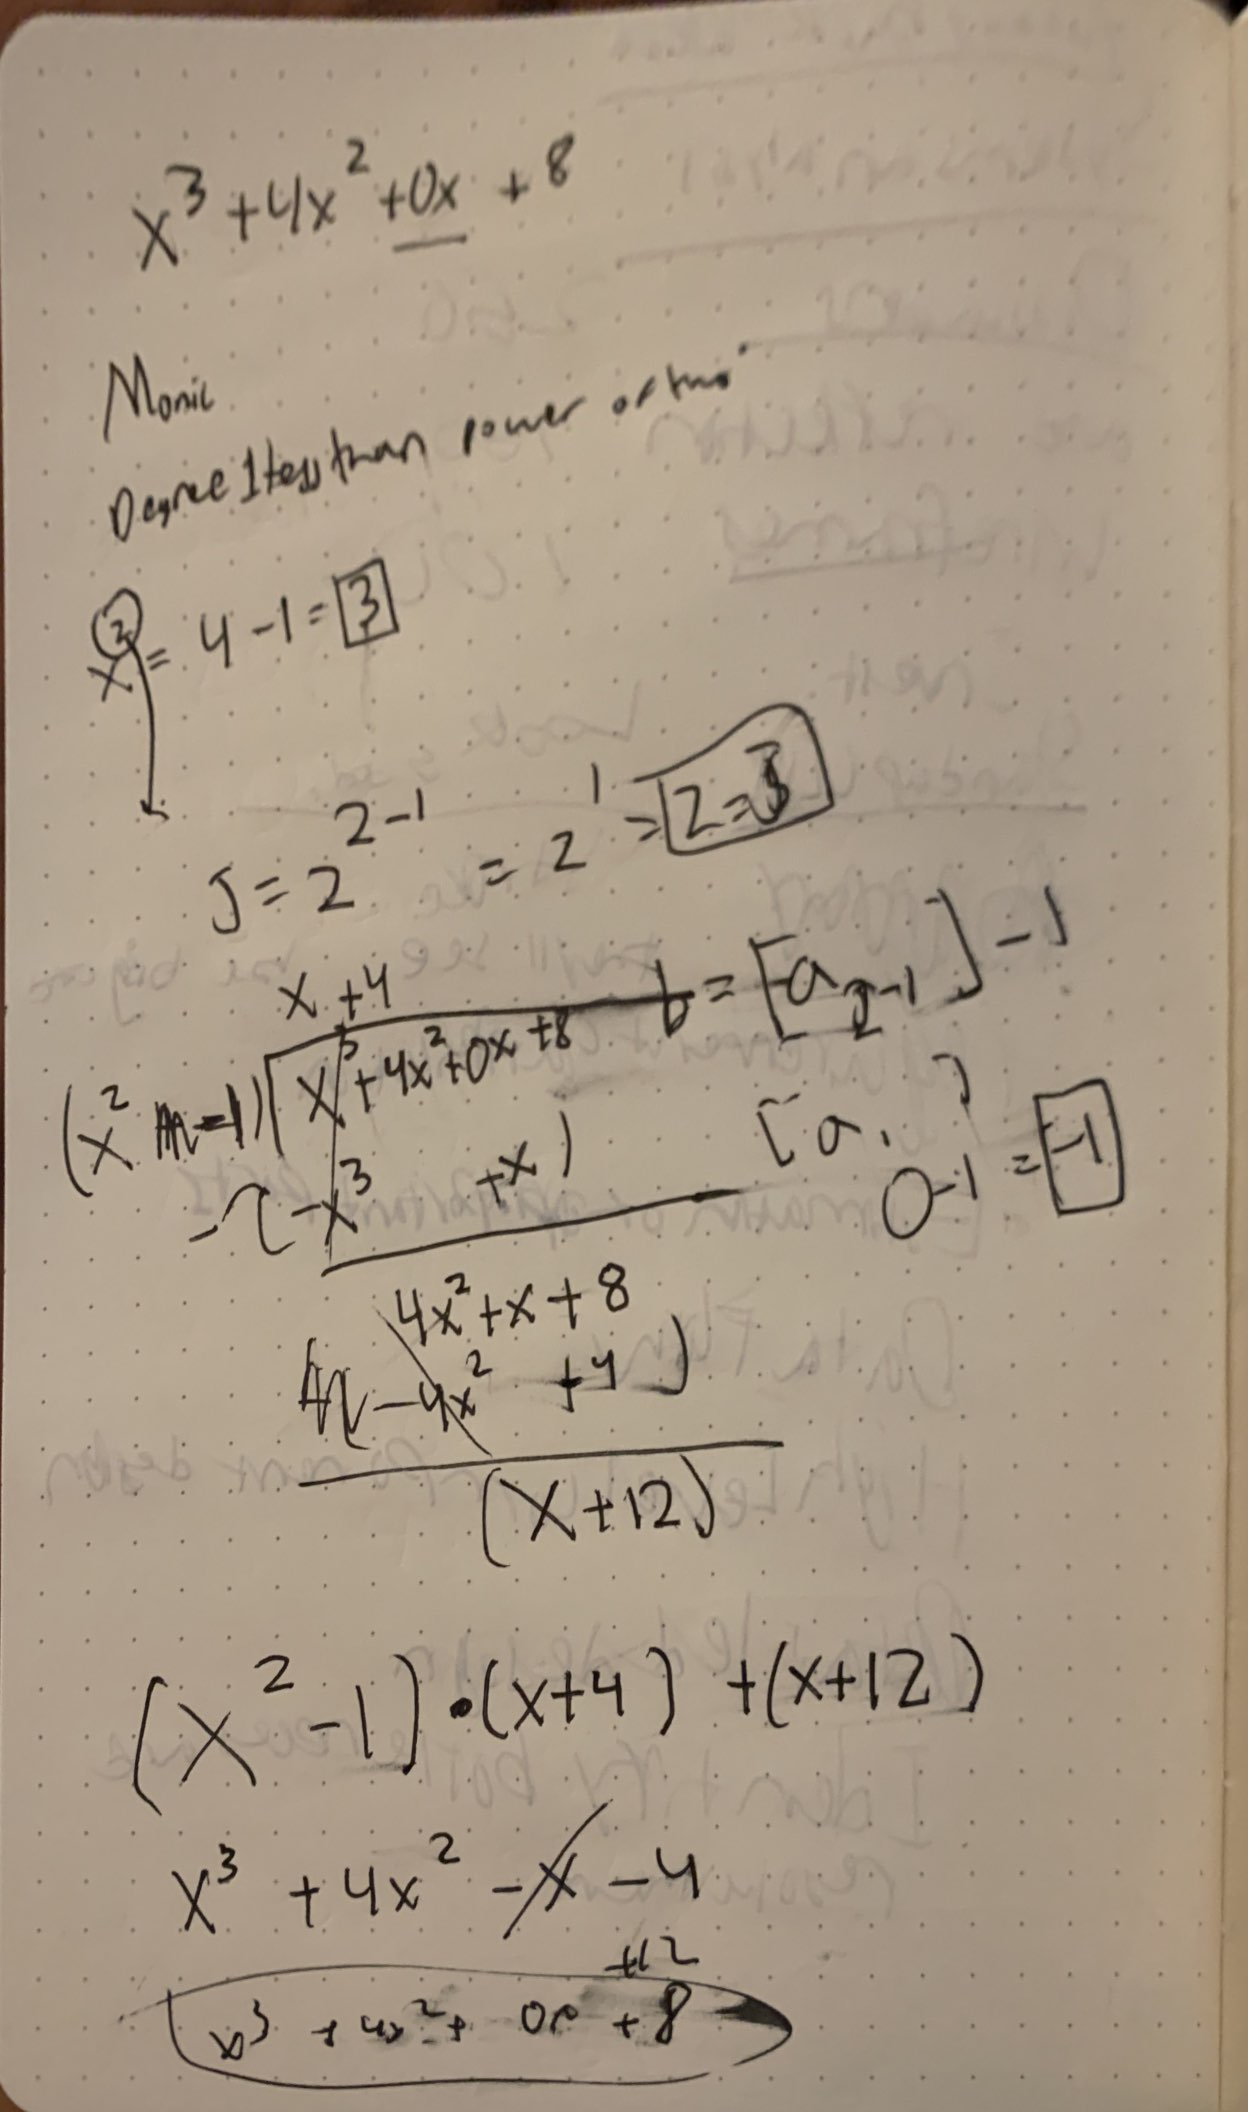 x³ + 4x² + 0x + 8
Monic
Degree 1 less than power of two
x² = 4 - 1 = 3
J = 2²⁻¹ = 2¹ = 2 = J
x + 4
b = [a_{J-1}] - 1
(x² - 1) x³ + 4x² + 0x + 8
- ( - x³ + x )
[a₁]
0 - 1 = -1
4x² + x + 8
- 4x² + 4 )
(x + 12)
(x² - 1) · (x + 4) + (x + 12)
x³ + 4x² - x - 4
+12
x³ + 4x² + 0x + 8